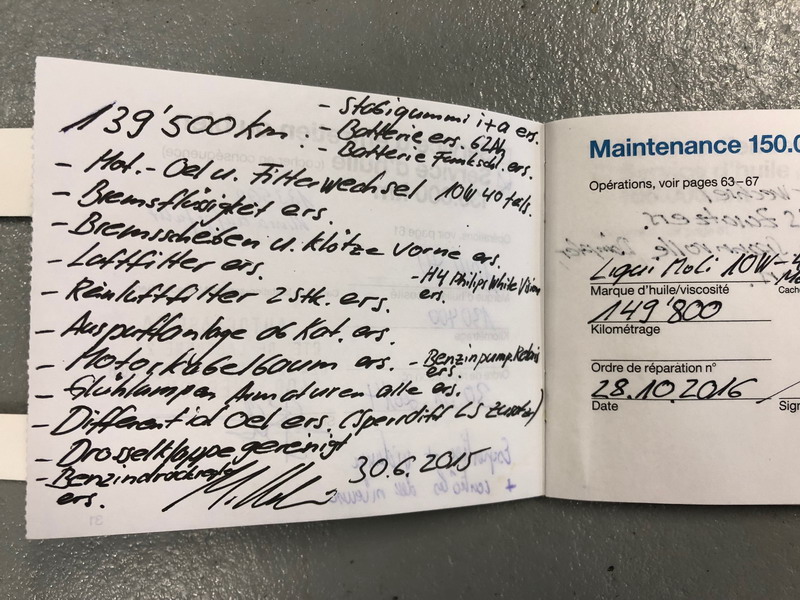 139'500 km
- Stabigummi i+a ers.
- Batterie ers. 62Ah
- Batterie Funkschl. ers.
- Mot.- Oel u. Filterwechsel 10W40 tels.
- Bremsflüssigkeit ers.
- Bremsscheiben u. Klötze vorne ers.
- Luftfilter ers.
- H4 Philips White Vision
ers.
- Reinluftfilter 2 Stk. ers.
- Auspuffanlage ab Kat. ers.
- Motorkabelbaum ers.
- Benzinpump Relais
ers.
- Glühlampen Armaturen alle ers.
- Differential Oel ers. (Sperrdiff LS Zusatz)
- Drosselklappe gereinigt
- Benzindruckregler
ers.
30.6.2015
31
Maintenance 150.0
Opérations, voir pages 63–67
Liqui Moli 10W-4
Marque d'huile/viscosité
Cach
149'800
Kilométrage
Ordre de réparation n°
28.10.2016
Date
Sign